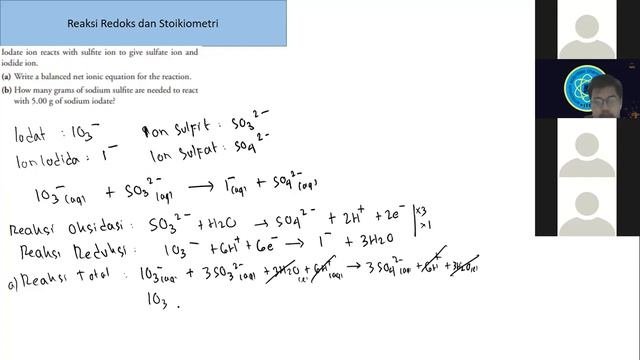 Reaksi Redoks dan Stoikiometri
Iodate ion reacts with sulfite ion to give sulfate ion and
iodide ion.
(a) Write a balanced net ionic equation for the reaction.
(b) How many grams of sodium sulfite are needed to react
with 5.00 g of sodium iodate?
Iodat : IO3⁻ Ion Sulfit : SO3²⁻
Ion Iodida : I⁻ Ion Sulfat : SO4²⁻
IO3⁻(aq) + SO3²⁻(aq) → I⁻(aq) + SO4²⁻(aq)
Reaksi Oksidasi : SO3²⁻ + H2O → SO4²⁻ + 2H⁺ + 2e⁻ | ×3
Reaksi Reduksi : IO3⁻ + 6H⁺ + 6e⁻ → I⁻ + 3H2O | ×1
a) Reaksi Total : IO3⁻(aq) + 3SO3²⁻(aq) + 3H2O(l) + 6H⁺(aq) → 3SO4²⁻(aq) + 6H⁺ + 3H2O(l)
IO3